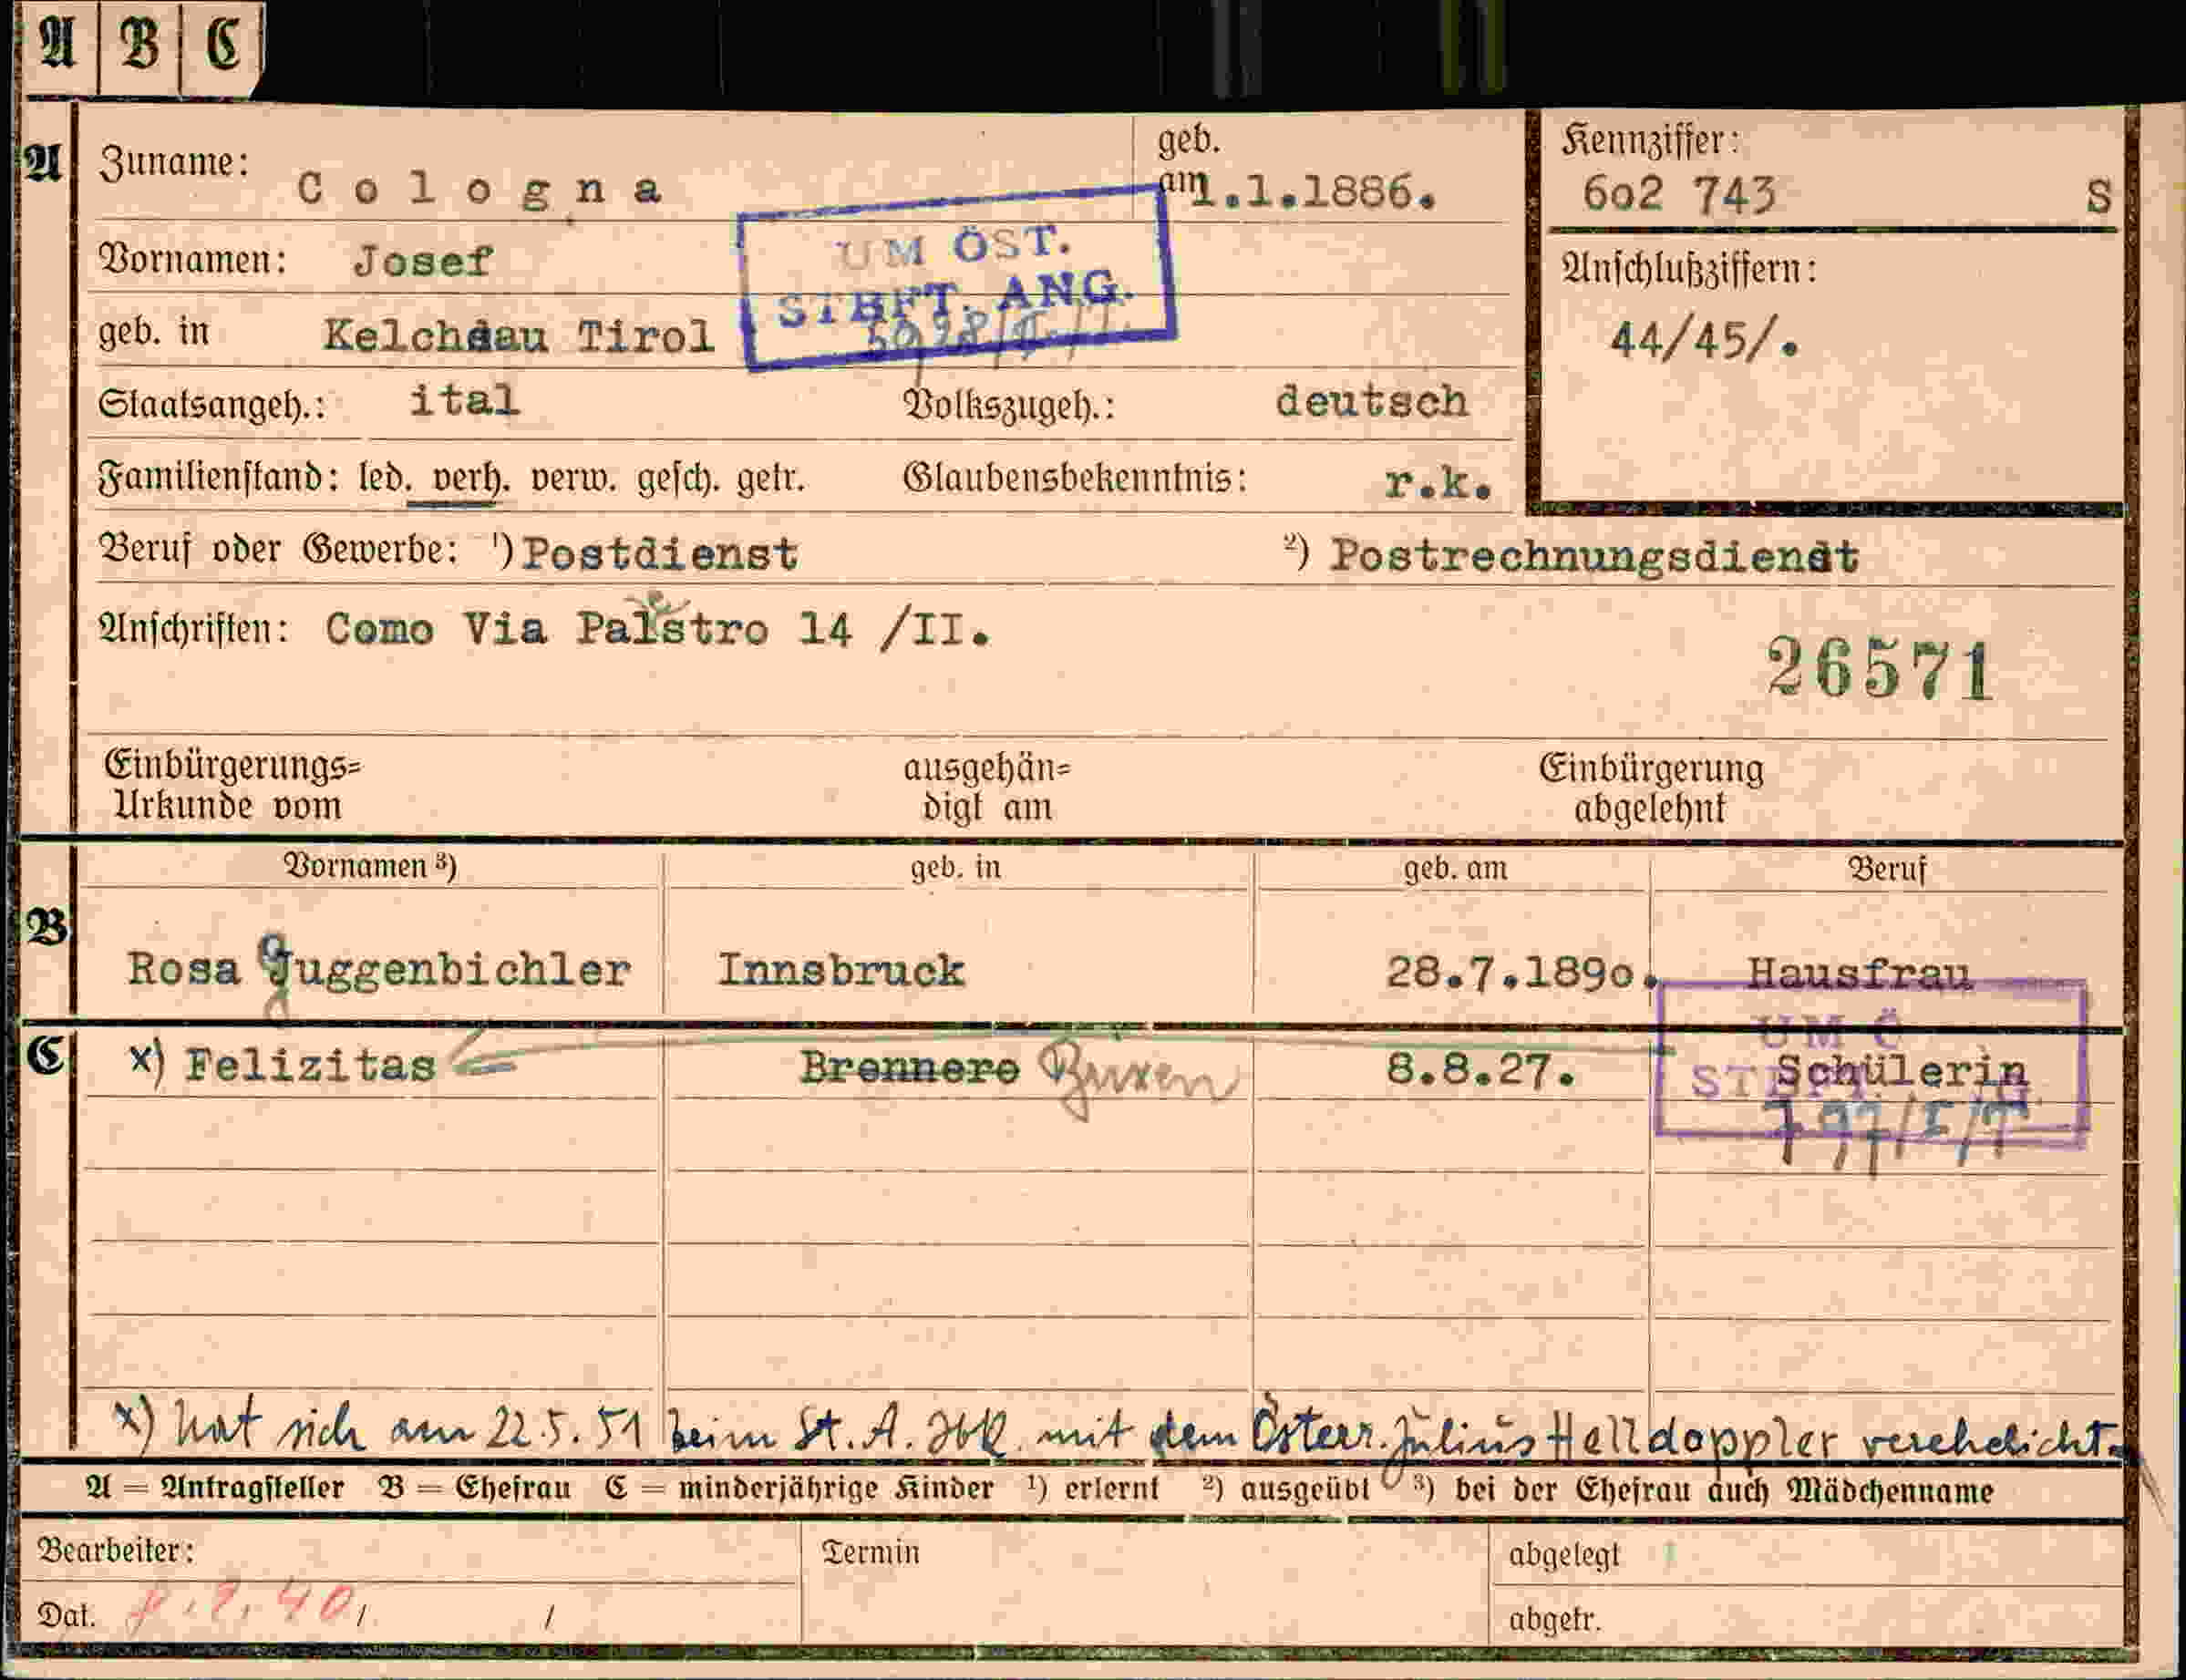 A B C
A Zuname: Cologna geb. am 1.1.1886. Kennziffer: 602 743 S
Vornamen: Josef
UM ÖST.
STBFT. ANG.
Anschlußziffern:
44/45/.
geb. in Kelchsau Tirol
Staatsangeh.: ital Volkszugeh.: deutsch
Familienstand: led. verh. verw. gesch. getr. Glaubensbekenntnis: r.k.
Beruf oder Gewerbe: ¹) Postdienst ²) Postrechnungsdienst
Anschriften: Como Via Palestro 14 /II.
26571
Einbürgerungs= ausgehän= Einbürgerung
Urkunde vom digt am abgelehnt
Vornamen ³) geb. in geb. am Beruf
B Rosa Guggenbichler Innsbruck 28.7.1890. Hausfrau
UM Ö
C x) Felizitas Brennero Brixen 8.8.27. Schülerin
797/I/T
x) hat sich am 22.5.51 beim St. A. Ibk. mit dem Österr. Julius Helldoppler verehelicht.
A = Antragsteller B = Ehefrau C = minderjährige Kinder ¹) erlernt ²) ausgeübt ³) bei der Ehefrau auch Mädchenname
Bearbeiter: Termin abgelegt
Dat. 40 / / abgetr.